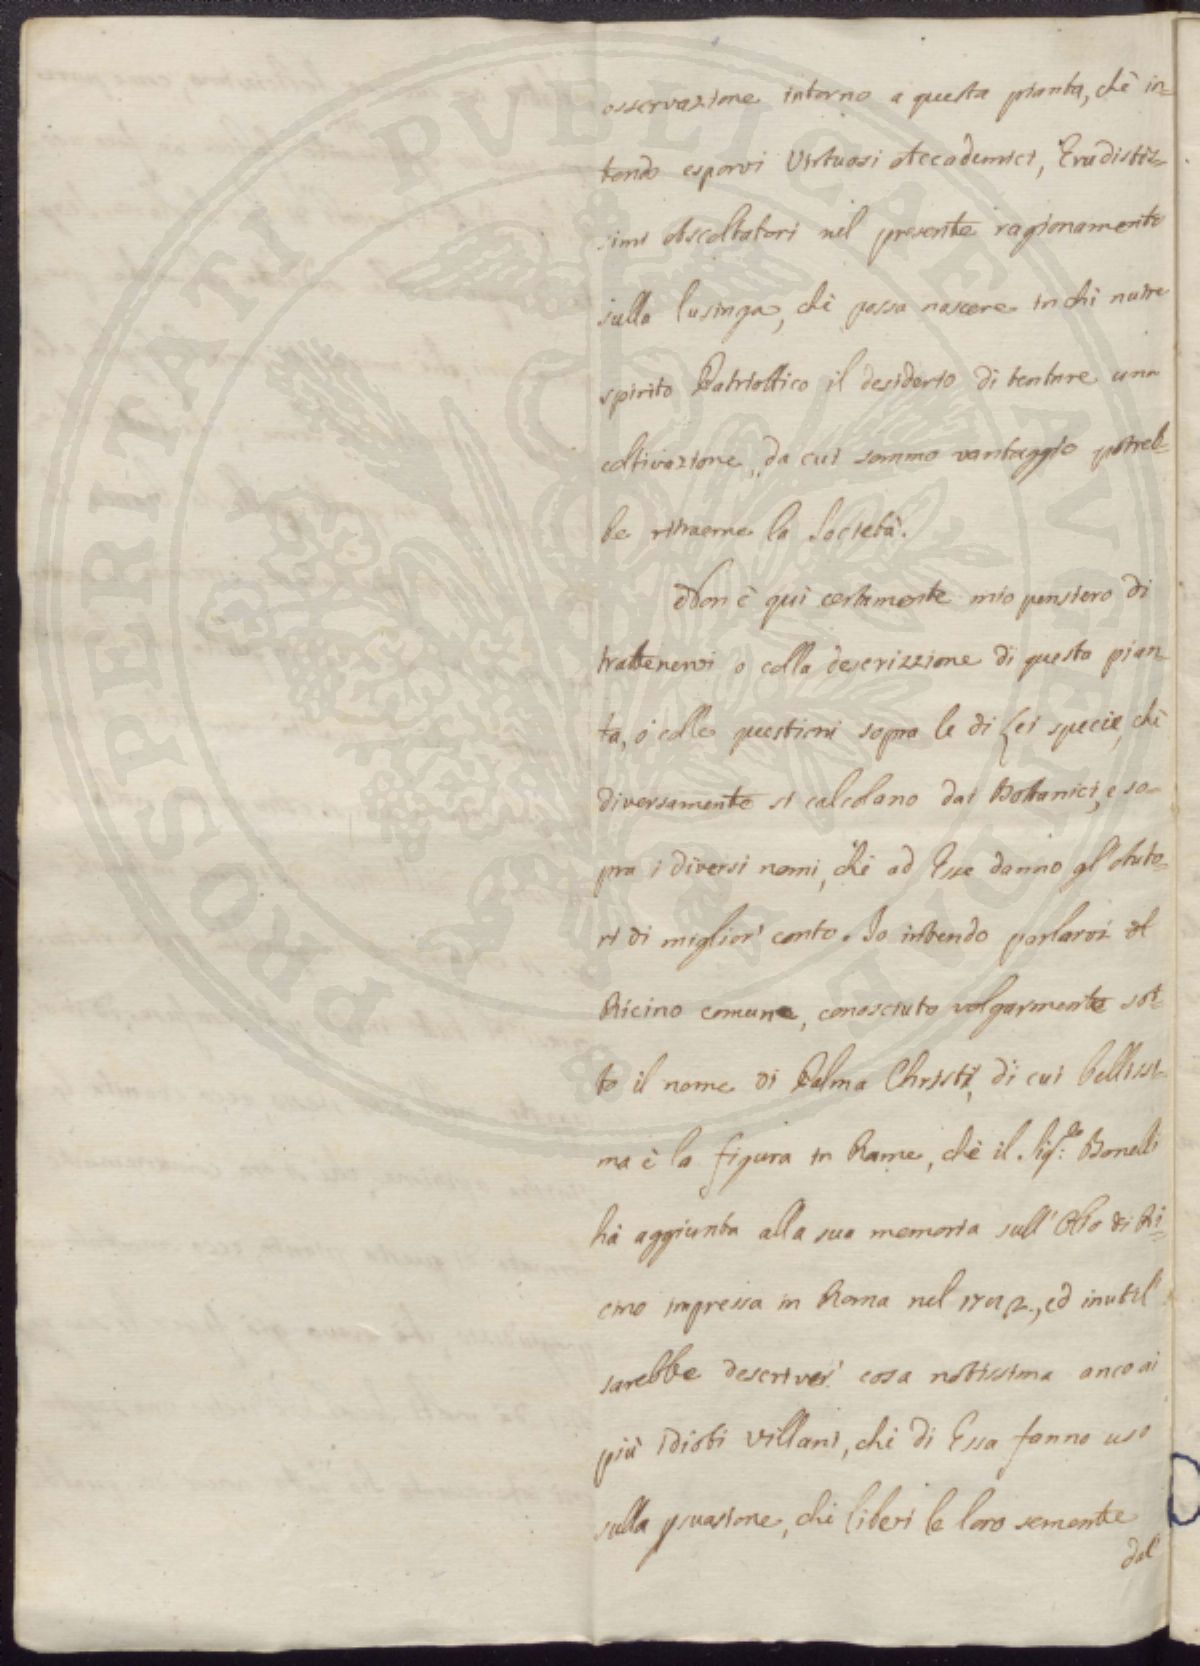 osservazione intorno a questa pianta, chè in=
tendo esporvi Virtuosi Accademici, Erudistis=
simi Ascoltatori nel presente ragionamento
sulla lusinga, chè possa nascere in chi nutre
spirito Patriottico il desiderio di tentare una
coltivazione, da cui sommo vantaggio potreb=
be ritraerne la Società.
Non è quì certamente mio pensiero di
trattenervi o colla descrizzione di questa pian=
ta, ò colle questioni sopra le di Lei specie, chè
diversamente si calcolano dai Bottanici, e so=
pra i diversi nomi, chè ad Esse danno gl'Auto=
ri di miglior conto. Io intendo parlarvi del
Ricino comune, conosciuto volgarmente sot=
to il nome di Palma Christi, di cui bellissi=
ma è la figura in Rame, chè il Sig:re Bonelli
hà aggiunta alla sua memoria sull'Olio di Ri=
cino impressa in Roma nel 1782., ed inutil
sarebbe descriver cosa notissima anco ai
più idioti villani, chè di Essa fanno uso
sulla psuasione, chè liberi le loro semente
dal
PROSPERITATI PVBLICAE AVGENDAE